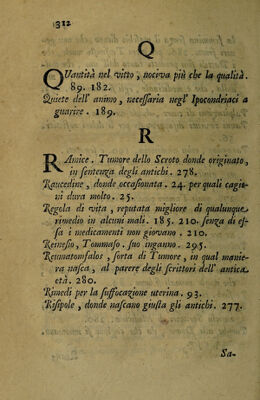 312
Q
QUantità nel vitto, nociva più che la qualità.
89. 182.
Quiete dell' animo, necessaria negl' Ipocondriaci a
guarire. 189.
R
RAmice. Tumore dello Scroto donde originato,
in sentenza degli antichi. 278.
Raucedine, donde occasionata. 24. per quali cagio-
ni dura molto. 25.
Regola di vita, reputata migliore di qualunque
rimedio in alcuni mali. 185. 210. senza di es-
sa i medicamenti non giovano. 210.
Reinesio, Tommaso. suo inganno. 295.
Reumatomsalos, sorta di Tumore, in qual manie-
ra nasca, al parere degli scrittori dell' antica
età. 280.
Rimedi per la suffocazione uterina. 93.
Risipole, donde nascano giusta gli antichi. 277.
Sa-